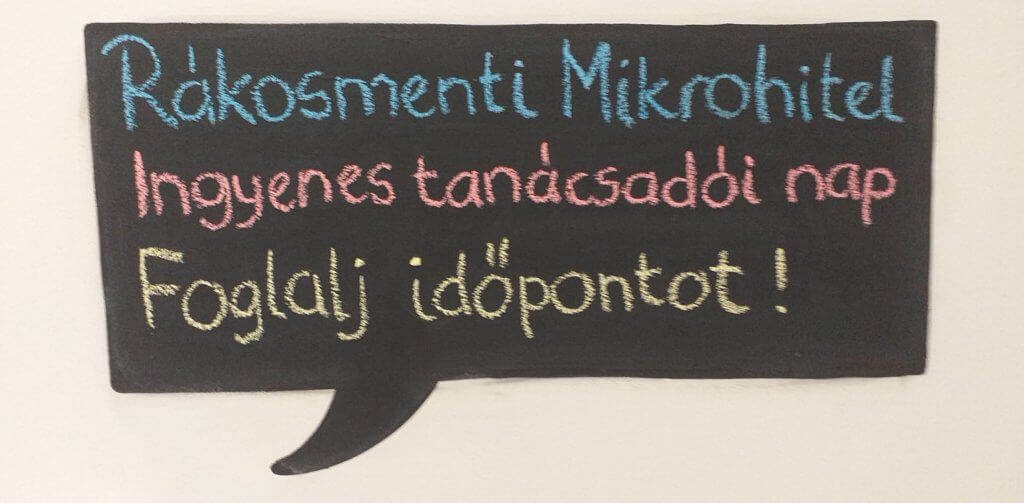 Rákosmenti Mikrohitel
Ingyenes tanácsadói nap
Foglalj időpontot!